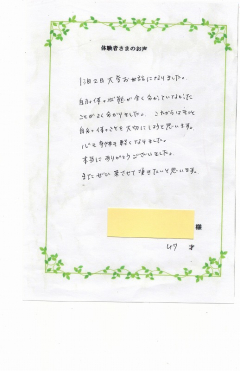 体験者さまのお声
1泊2日大変お世話になりました。
自分の体の状態が全く分かっていなかった
ことがよく分かりました。これからはもっと
自分の体のことを大切にしようと思います。
心も身体も軽くなりました。
本当にありがとうございました。
またぜひ来させて頂きたいと思います。
様
47 才